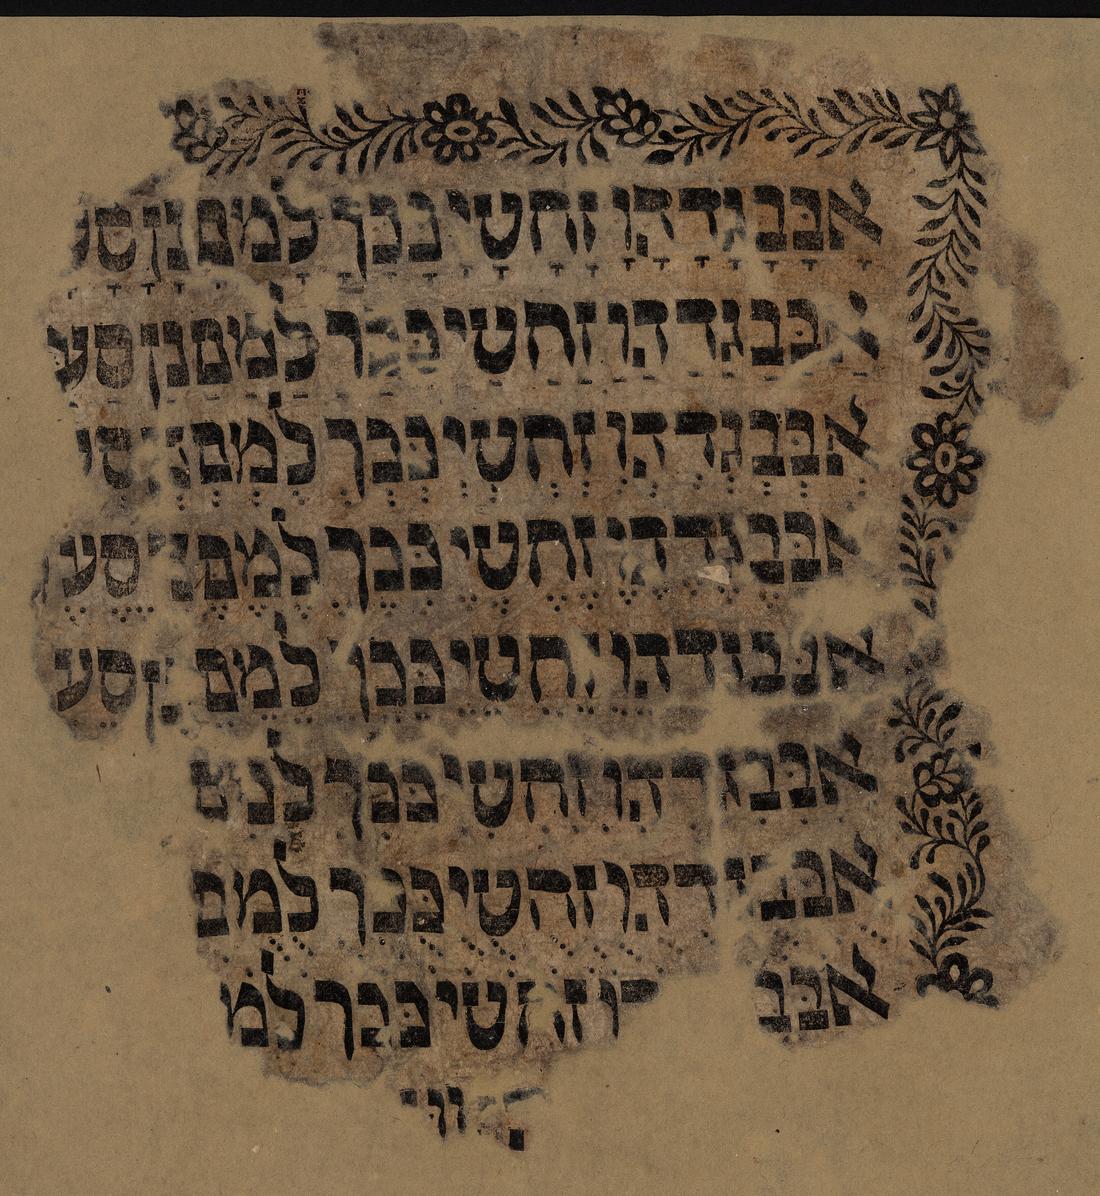 אבבגדהו זחטי ככך למם נןסע
אבבגדהו זחטי ככך למם נןסע
אבבגדהו זחטי ככך למם נ ס
אבבגדהו זחטי ככך למם נ סע
אבבגדהו זחטי ככך למם ןסע
אבבג דהו זחטי ככך למם
אבב דהו זחטי ככך למם
אבב וזחטי ככך למ